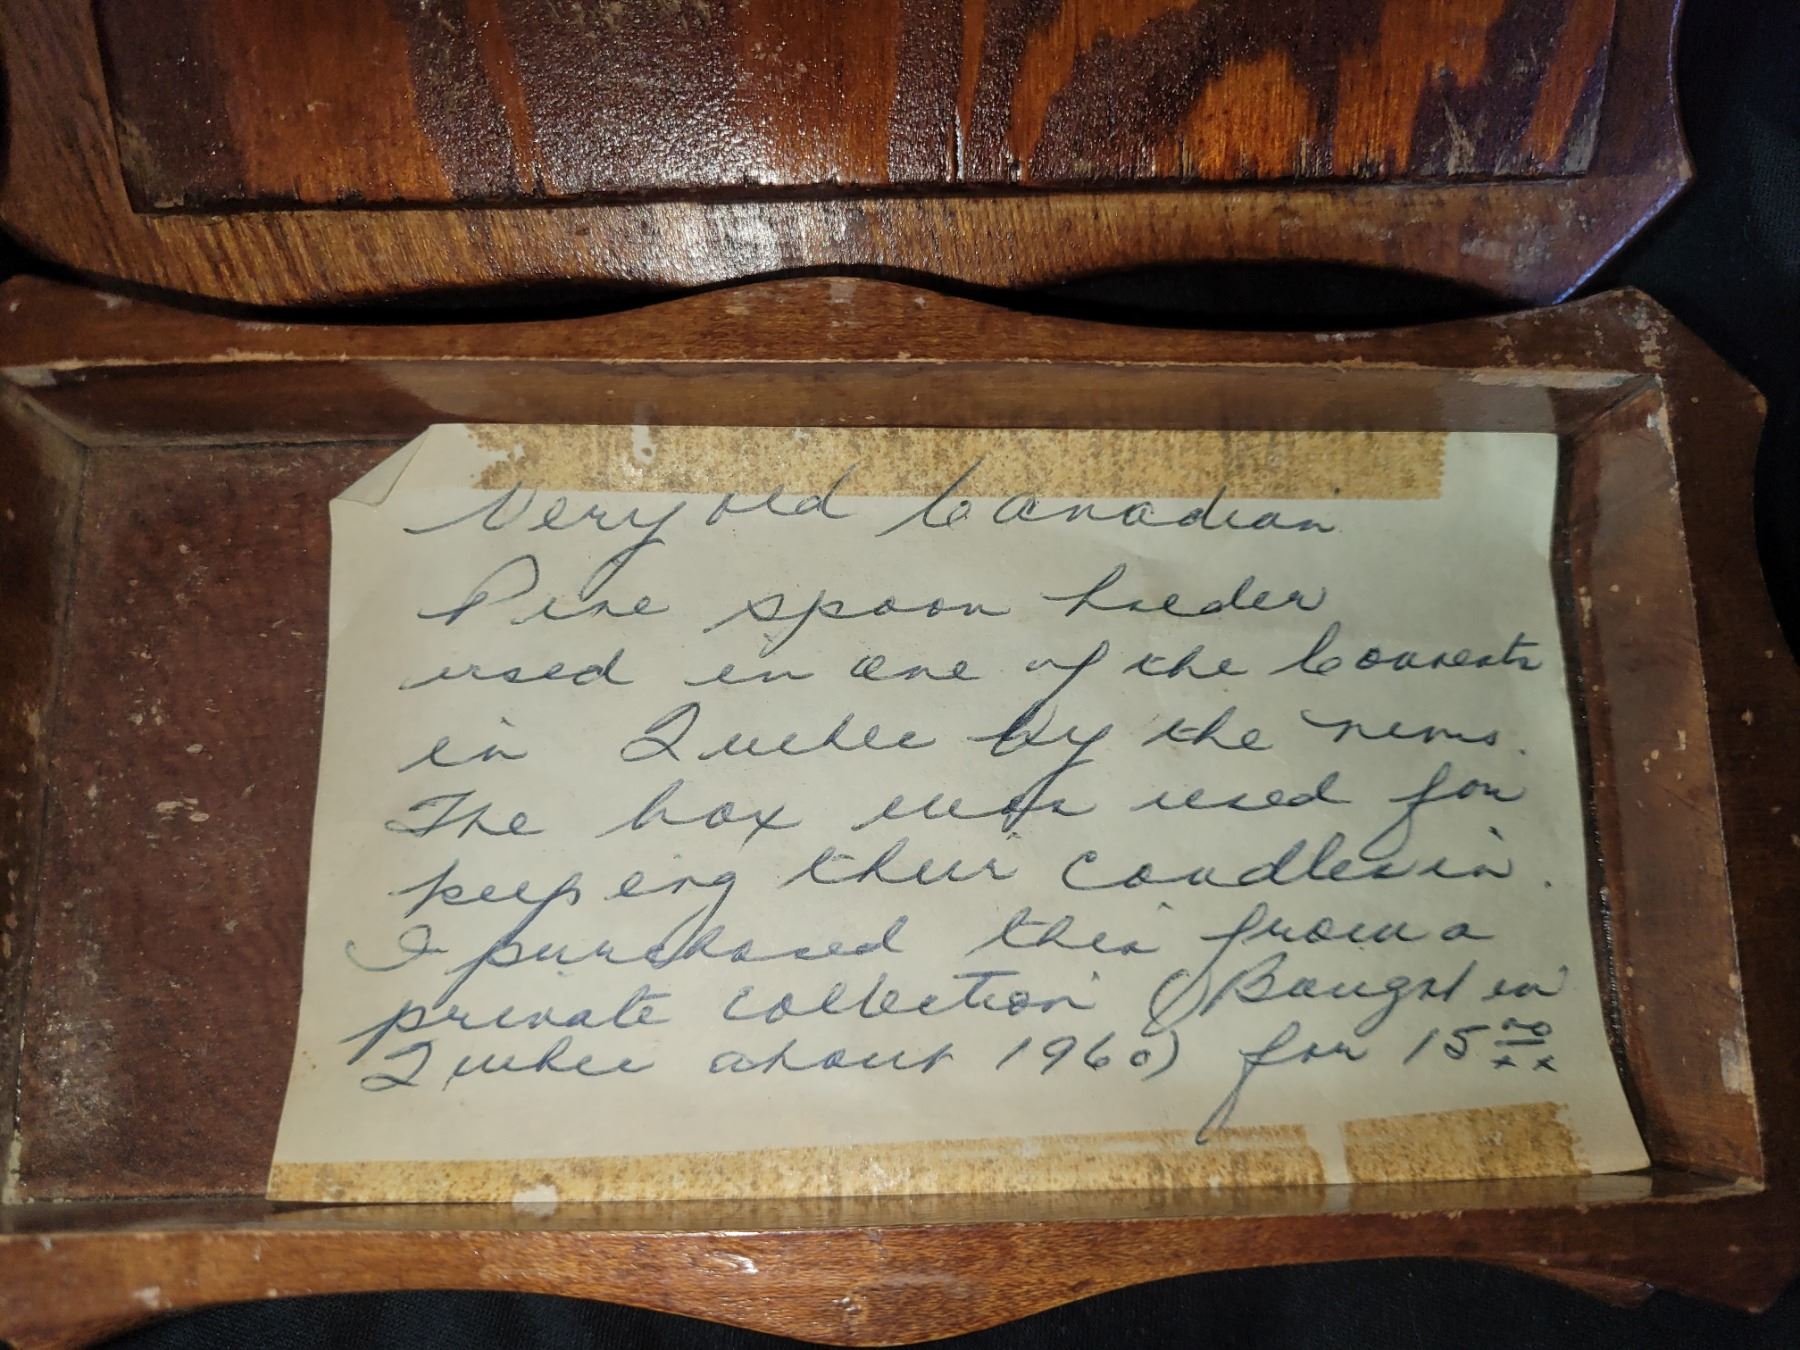 Very old Canadian
Pine spoon holder
used in one of the Convents
in Quebec by the nuns.
The box was used for
keeping their candles in.
I purchased this from a
private collection (Bought in
Quebec about 1960) for 15